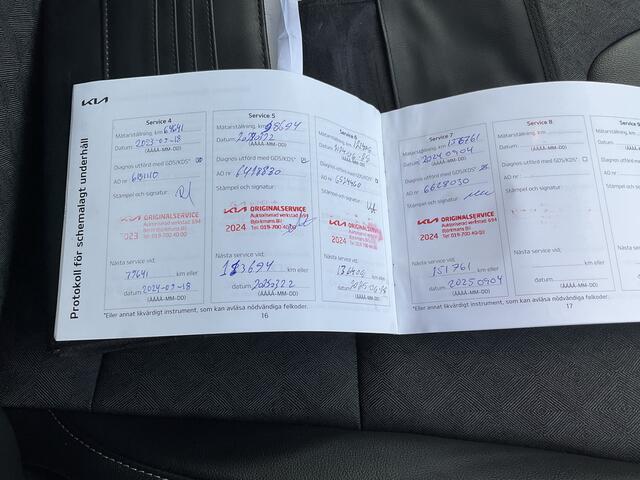 KIA
Protokoll för schemalagt underhåll
Service 4
Mätarställning, km 64641
Datum 2023-09-18
(ÅÅÅÅ-MM-DD)
Diagnos utförd med GDS/KDS*
AO nr
Stämpel och signatur:
KIA ORIGINALSERVICE
Auktoriserad verkstad 694
2023
Tel: 019-700 40 00
Nästa service vid:
77641 km eller
datum 2024-09-18
(ÅÅÅÅ-MM-DD)
Service 5
Mätarställning, km 98694
Datum
(ÅÅÅÅ-MM-DD)
Diagnos utförd med GDS/KDS*
AO nr 6488830
Stämpel och signatur:
KIA ORIGINALSERVICE
Auktoriserad verkstad 694
2024 Björkmans Bil
Tel: 019-700 40 00
Nästa service vid:
113694 km eller
datum 20250322
(ÅÅÅÅ-MM-DD)
Service 6
Mätarställning, km
Datum
(ÅÅÅÅ-MM-DD)
Diagnos utförd med GDS/KDS*
AO nr
Stämpel och signatur:
KIA ORIGINALSERVICE
2024
Nästa service vid:
km eller
datum
(ÅÅÅÅ-MM-DD)
*Eller annat likvärdigt instrument, som kan avläsa nödvändiga felkoder.
16
Service 7
Mätarställning, km 136761
Datum 20240904
(ÅÅÅÅ-MM-DD)
Diagnos utförd med GDS/KDS*
AO nr 6628030
Stämpel och signatur:
KIA ORIGINALSERVICE
Auktoriserad verkstad 694
2024 Björkmans Bil
Tel: 019-700 40 00
Nästa service vid:
151761 km eller
datum 20250904
(ÅÅÅÅ-MM-DD)
Service 8
Mätarställning, km
Datum
(ÅÅÅÅ-MM-DD)
Diagnos utförd med GDS/KDS*
AO nr
Stämpel och signatur:
Nästa service vid:
km eller
datum
(ÅÅÅÅ-MM-DD)
Service 9
Datum
AO nr
datum
*Eller annat likvärdigt instrument, som kan avläsa nödvändiga felkoder.
17